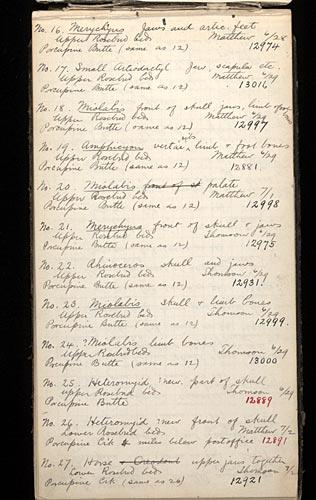 No. 16. Merychyus Jaws and artic. feet
Upper Rosebud beds Matthew 6/28
Porcupine Butte (same as 12) 12974
No. 17. Small Artiodactyl Jaw, scapula etc.
Upper Rosebud beds Matthew 6/29
Porcupine Butte (same as 12) 13016
No. 18. Miolabis front of skull jaws, limb & foot bones
Upper Rosebud beds Matthew 6/29
Porcupine Butte (same as 12) 12997
No. 19. Amphicyon vertae, limb & foot bones
Upper Rosebud beds Matthew 6/29
Porcupine Butte (same as 12) 12881
No. 20. Miolabis front of sk palate
Upper Rosebud beds Matthew 7/1
Porcupine Butte (same as 12) 12998
No. 21. Merychyus front of skull & jaws
Upper Rosebud beds Thomson 6/29
Porcupine Butte (same as 12) 12975
No. 22. Rhinoceros skull and jaws
Upper Rosebud beds Thomson 6/29
Porcupine Butte (same as 12) 12931
No. 23. Miolabis skull & limb bones
Upper Rosebud beds Thomson 6/29
Porcupine Butte (same as 12) 12999
No. 24. ?Miolabis limb bones
Upper Rosebud beds Thomson 6/29
Porcupine Butte (same as 12) 13000
No. 25. Heteromyid ?new. part of skull
Upper Rosebud beds Thomson 6/29
Porcupine Butte 12889
No. 26. Heteromyid ?new front of skull
Lower Rosebud beds Matthew 7/2
Porcupine Crk miles below postoffice 12891
No. 27. Horse & Oreodont upper jaws together
Lower Rosebud beds Thomson
Porcupine Crk (same as 26) 12921